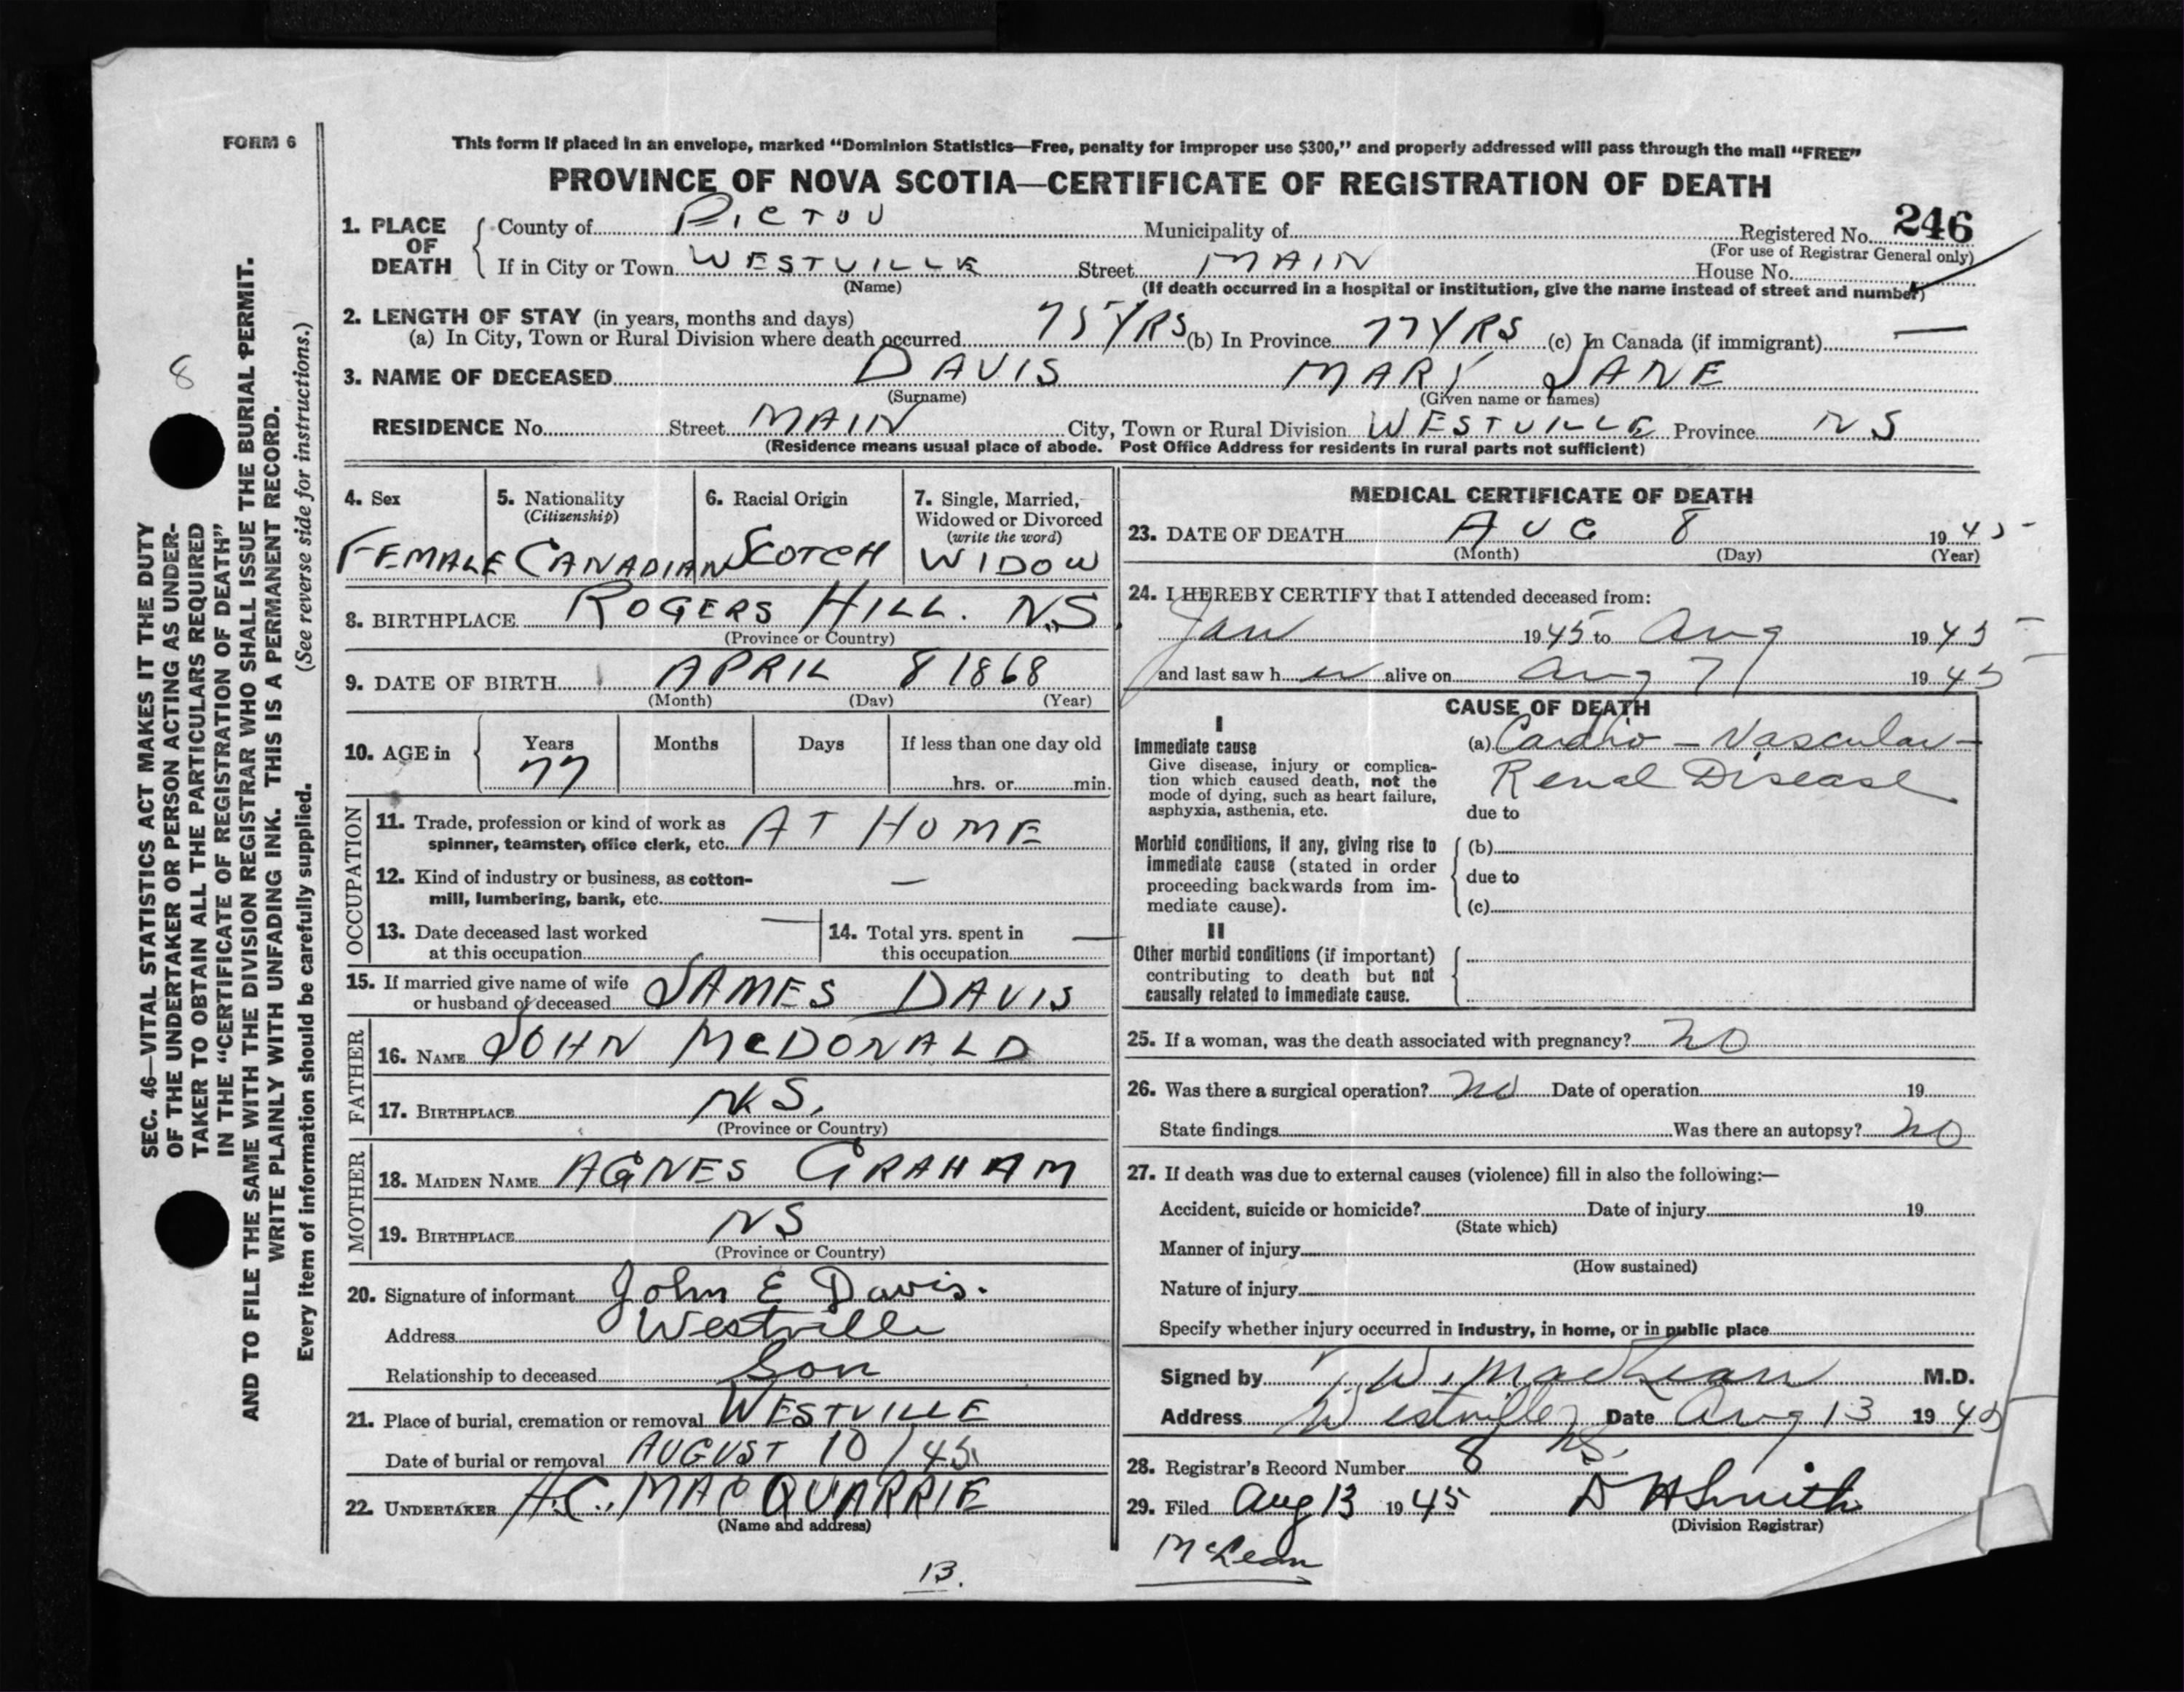 FORM 6
This form if placed in an envelope, marked "Dominion Statistics—Free, penalty for improper use $300," and properly addressed will pass through the mail "FREE"
PROVINCE OF NOVA SCOTIA—CERTIFICATE OF REGISTRATION OF DEATH
1. PLACE OF DEATH County of PICTOU Municipality of Registered No. 246
(For use of Registrar General only)
If in City or Town WESTVILLE Street MAIN House No.
(Name) (If death occurred in a hospital or institution, give the name instead of street and number)
2. LENGTH OF STAY (in years, months and days)
(a) In City, Town or Rural Division where death occurred 75 YRS (b) In Province 77 YRS (c) In Canada (if immigrant) —
3. NAME OF DECEASED DAVIS MARY JANE
(Surname) (Given name or names)
RESIDENCE No. Street MAIN City, Town or Rural Division WESTVILLE Province NS
(Residence means usual place of abode. Post Office Address for residents in rural parts not sufficient)
4. Sex 5. Nationality 6. Racial Origin 7. Single, Married,
(Citizenship) Widowed or Divorced
(write the word)
FEMALE CANADIAN SCOTCH WIDOW
8. BIRTHPLACE ROGERS HILL. N.S
(Province or Country)
9. DATE OF BIRTH APRIL 8 1868
(Month) (Day) (Year)
10. AGE in Years Months Days If less than one day old
77 hrs. or min.
OCCUPATION
11. Trade, profession or kind of work as
spinner, teamster, office clerk, etc. AT HOME
12. Kind of industry or business, as cotton-
mill, lumbering, bank, etc. —
13. Date deceased last worked
at this occupation —
14. Total yrs. spent in
this occupation —
15. If married give name of wife
or husband of deceased JAMES DAVIS
FATHER
16. NAME JOHN McDONALD
17. BIRTHPLACE N.S.
(Province or Country)
MOTHER
18. MAIDEN NAME AGNES GRAHAM
19. BIRTHPLACE NS
(Province or Country)
20. Signature of informant John E Davis.
Address Westville
Relationship to deceased Son
21. Place of burial, cremation or removal WESTVILLE
Date of burial or removal AUGUST 10/45
22. UNDERTAKER H.C. MACQUARRIE
(Name and address)
13.
MEDICAL CERTIFICATE OF DEATH
23. DATE OF DEATH AUG 8 1945
(Month) (Day) (Year)
24. I HEREBY CERTIFY that I attended deceased from:
Jan 1945 to Aug 1945
and last saw her alive on Aug 7 1945
CAUSE OF DEATH
I
Immediate cause (a) Cardio-Vascular-
Give disease, injury or complica-
tion which caused death, not the Renal Disease
mode of dying, such as heart failure,
asphyxia, asthenia, etc. due to
Morbid conditions, if any, giving rise to (b)
immediate cause (stated in order
proceeding backwards from im- due to
mediate cause). (c)
II
Other morbid conditions (if important)
contributing to death but not
causally related to immediate cause.
25. If a woman, was the death associated with pregnancy? no
26. Was there a surgical operation? no Date of operation 19
State findings Was there an autopsy? no
27. If death was due to external causes (violence) fill in also the following:—
Accident, suicide or homicide? Date of injury 19
(State which)
Manner of injury
(How sustained)
Nature of injury
Specify whether injury occurred in industry, in home, or in public place
Signed by T. W. MacLean M.D.
Address Westville, Date Aug 13 1945
NS.
28. Registrar's Record Number 8
29. Filed Aug 13 1945 D H Smith
(Division Registrar)
McLean
8
SEC. 46—VITAL STATISTICS ACT MAKES IT THE DUTY
OF THE UNDERTAKER OR PERSON ACTING AS UNDER-
TAKER TO OBTAIN ALL THE PARTICULARS REQUIRED
IN THE "CERTIFICATE OF REGISTRATION OF DEATH"
AND TO FILE THE SAME WITH THE DIVISION REGISTRAR WHO SHALL ISSUE THE BURIAL PERMIT.
WRITE PLAINLY WITH UNFADING INK. THIS IS A PERMANENT RECORD.
Every item of information should be carefully supplied. (See reverse side for instructions.)